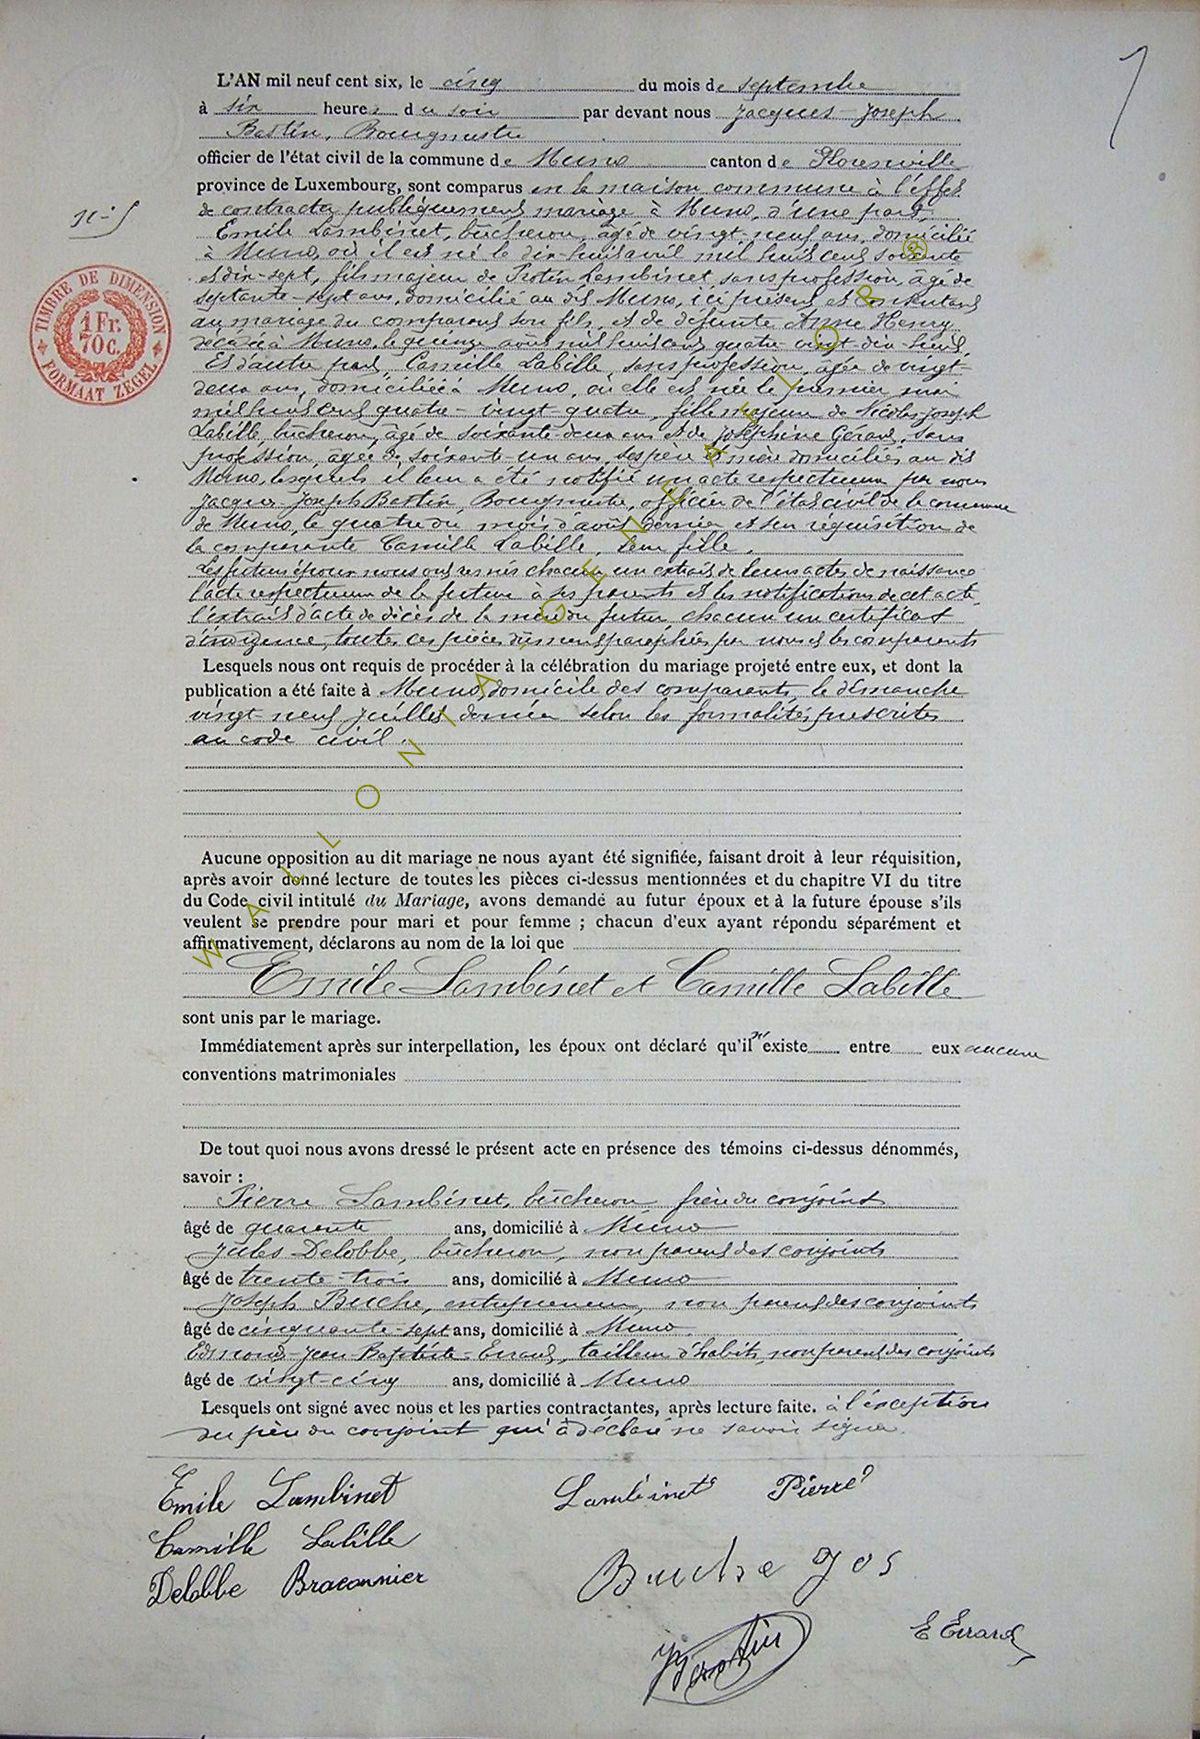 7
L'AN mil neuf cent six, le cinq du mois de septembre
à six heures du soir par devant nous Jacques-Joseph
Bastin, Bourgmestre
officier de l'état civil de la commune de Muno canton de Florenville
province de Luxembourg, sont comparus en la maison commune à l'effet
de contracter publiquement mariage à Muno, d'une part,
Emile Lambinet, bûcheron, âgé de vingt-neuf ans, domicilié
à Muno, où il est né le dix-huit avril mil huit cent soixante
et dix-sept, fils majeur de Lambinet, sans profession, âgé de
septante-sept ans, domicilié au dit Muno, ici présent et consentant
au mariage du comparant son fils, et de défunte Anne Henry
décédée à Muno, le quinze août mil huit cent quatre vingt-dix-huit,
Et d'autre part, Camille Labille, sans profession, âgée de vingt-
deux ans, domiciliée à Muno, où elle est née le premier mai
mil huit cent quatre-vingt-quatre, fille majeure de Nicolas Joseph
Labille, bûcheron, âgé de soixante-deux ans et de Joséphine Gérard, sans
profession, âgée de soixante-un ans, ses père et mère domiciliés au dit
Muno, lesquels il leur a été notifié un acte respectueux par nous
Jacques Joseph Bastin, Bourgmestre, officier de l'état civil de la commune
de Muno, le quatre du mois d'août dernier et en réquisition de
la comparante Camille Labille, leur fille.
Les futurs époux nous ont remis chacun un extrait de leurs actes de naissance
l'acte respectueux de la future à ses parents et les notifications de cet acte,
l'extrait d'acte de décès de la mère du futur chacun un certificat
d'indigence, toutes ces pièces dûment paraphées par nous et les comparants
Lesquels nous ont requis de procéder à la célébration du mariage projeté entre eux, et dont la
publication a été faite à Muno, domicile des comparants le dimanche
vingt-neuf juillet dernier selon les formalités prescrites
au code civil.
Aucune opposition au dit mariage ne nous ayant été signifiée, faisant droit à leur réquisition,
après avoir donné lecture de toutes les pièces ci-dessus mentionnées et du chapitre VI du titre
du Code civil intitulé du Mariage, avons demandé au futur époux et à la future épouse s'ils
veulent se prendre pour mari et pour femme ; chacun d'eux ayant répondu séparément et
affirmativement, déclarons au nom de la loi que
Emile Lambinet et Camille Labille
sont unis par le mariage.
Immédiatement après sur interpellation, les époux ont déclaré qu'il n'existe entre eux aucune
conventions matrimoniales
De tout quoi nous avons dressé le présent acte en présence des témoins ci-dessus dénommés,
savoir :
Pierre Lambinet, bûcheron frère du conjoint
âgé de quarante ans, domicilié à Muno
Jules Delobbe, bûcheron, non parent des conjoints
âgé de trente-trois ans, domicilié à Muno
Joseph Buche, entrepreneur, non parent des conjoints
âgé de cinquante-sept ans, domicilié à Muno
Edmond-Jean-Baptiste-Errard, tailleur d'habits, non parent des conjoints
âgé de vingt-cinq ans, domicilié à Muno
Lesquels ont signé avec nous et les parties contractantes, après lecture faite. à l'exception
du père du conjoint qui a déclaré ne savoir signer.
Emile Lambinet
Lambinet Pierre
Camille Labille
Delobbe Braconnier
Buche Jos
E Errard
JJBastin
TIMBRE DE DIMENSION
1 Fr. 70 c.
FORMAAT ZEGEL
WALLONIA-GENEALOR®